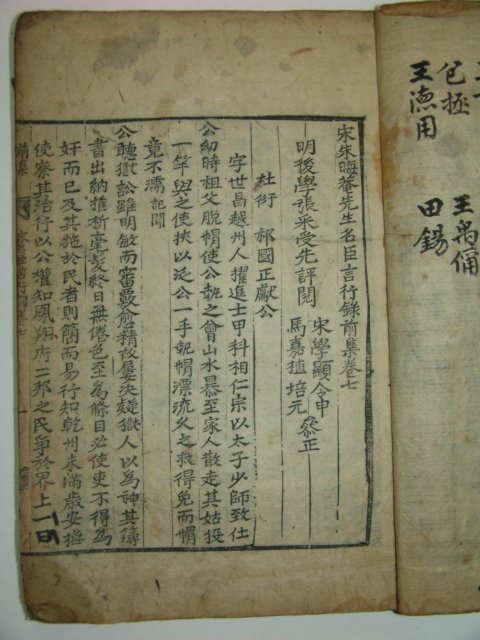 王禹偁
田錫
包拯
王德用
宋朱晦菴先生名臣言行錄前集卷七
明後學張采受先評閱
宋學顯令申
馬嘉植培元 叅正
杜衍 祁國正獻公
字世昌越州人擢進士甲科相仁宗以太子少師致仕
公幼時祖父脫帽使公執之會山水暴至家人散走其姑投
一竿與之使挾以泛公一手執帽漂流久之救得免而帽
竟不濡記聞
公聽獄訟雖明敏而審覈愈精故屢決疑獄人以為神其簿
書出納推析毫髮終日無倦色至為條目必使吏不得為
奸而已及其施於民者則簡而易行知乾州未滿歲安撫
使察其治行以公權知鳳翔府二邦之民爭於界上一曰
前集